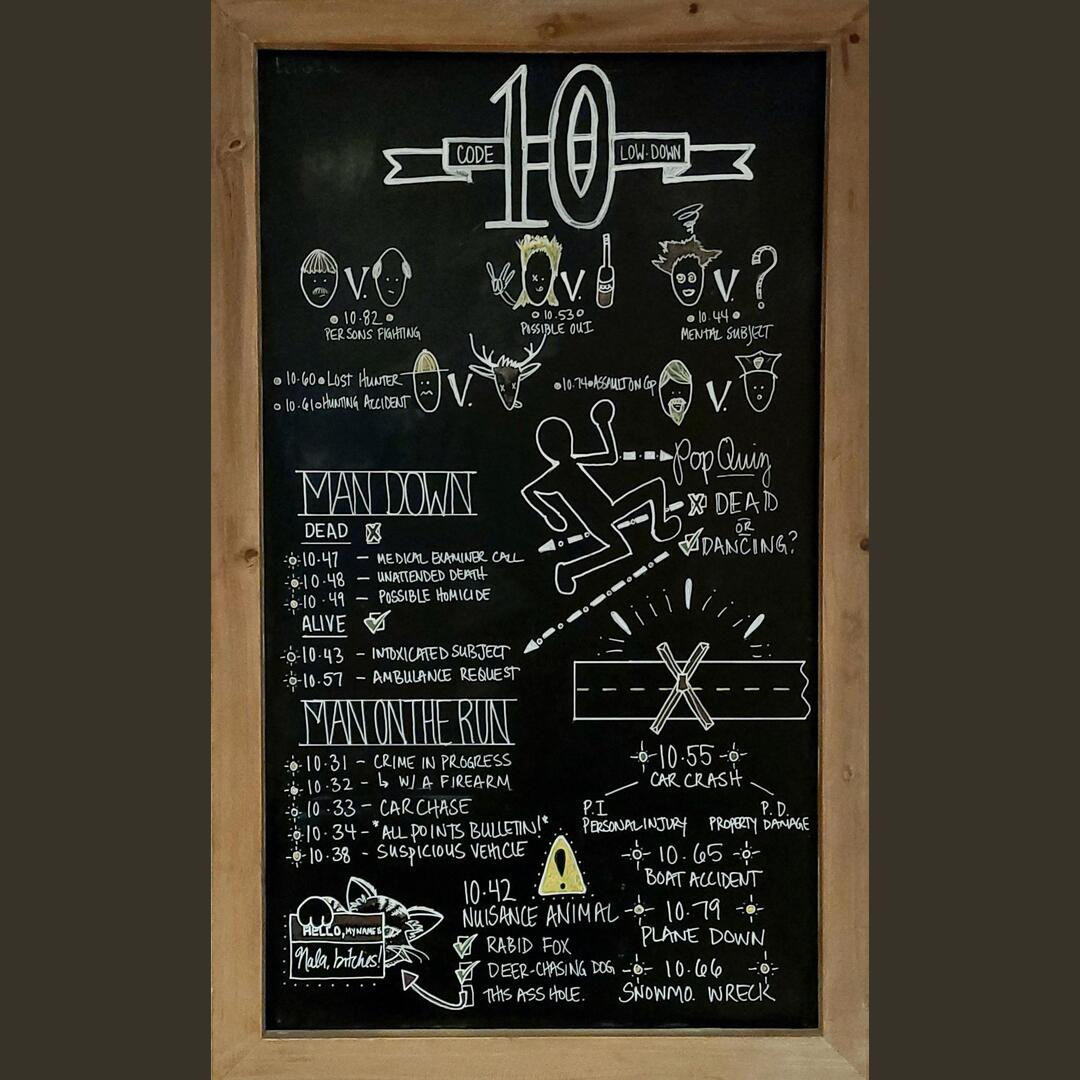 CODE 10 LOW-DOWN
V.
10.82
PERSONS FIGHTING
V.
10.53
POSSIBLE OUI
V. ?
10.44
MENTAL SUBJECT
10.60 LOST HUNTER
10.61 HUNTING ACCIDENT
V.
10.74 ASSAULT ON COP
V.
Pop Quiz
X DEAD
OR
DANCING?
MAN DOWN
DEAD X
10.47 — MEDICAL EXAMINER CALL
10.48 — UNATTENDED DEATH
10.49 — POSSIBLE HOMICIDE
ALIVE
10.43 — INTOXICATED SUBJECT
10.57 — AMBULANCE REQUEST
MAN ON THE RUN
10.31 - CRIME IN PROGRESS
10.32 - ↳ W/A FIREARM
10.33 - CAR CHASE
10.34 - *ALL POINTS BULLETIN!*
10.38 - SUSPICIOUS VEHICLE
10.55
CAR CRASH
P.I
PERSONAL INJURY
P.D.
PROPERTY DAMAGE
10.65
BOAT ACCIDENT
10.79
PLANE DOWN
10.66
SNOWMO. WRECK
!
10.42
NUISANCE ANIMAL
RABID FOX
DEER-CHASING DOG
THIS ASSHOLE.
HELLO, MY NAME IS
Nala, bitches!